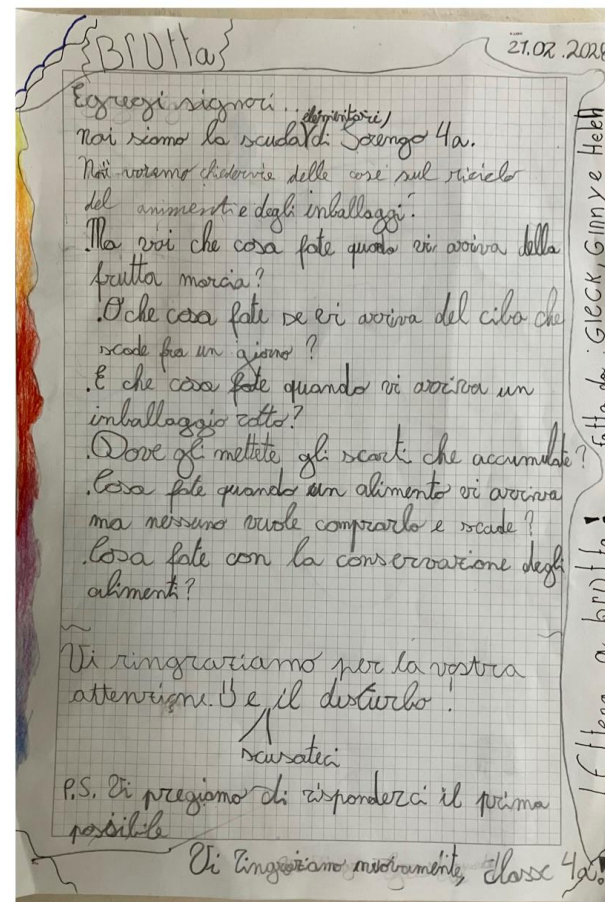 {Brutta}
21.02.202
Egregi signori...
elementari,
noi siamo la scuola di Sorengo 4a.
Noi voremo chidervie delle cose sul riciclo
del animenti e degli inballaggi.
.Ma voi che cosa fate quando vi arriva della
frutta marcia?
.O che cosa fate se vi arriva del cibo che
scade fra un giorno?
.E che cosa fate quando vi arriva un
imballaggio rotto?
.Dove gli mettete gli scarti che accumulate?
.Cosa fate quando un alimento vi arriva
ma nessuno vuole comprarlo e scade?
.Cosa fate con la conservazione degli
alimenti?
Vi ringraziamo per la vostra
attenzione. e il disturbo!
scusateci
P.S. Vi pregiamo di risponderci il prima
possibile
Vi ringraziamo nuovamente, classe 4a!
fatta da: GIECK, GINNY e
lettera a brutta!